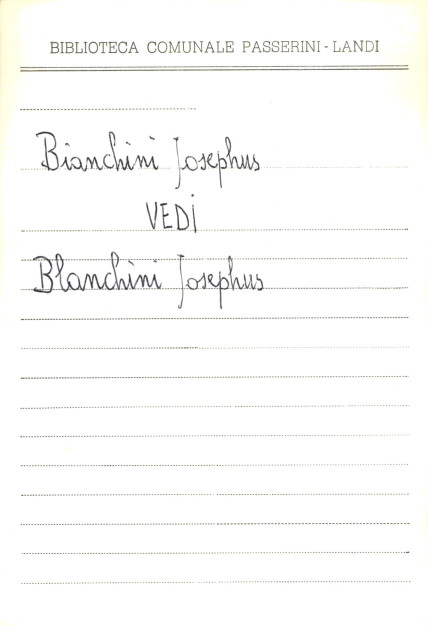 BIBLIOTECA COMUNALE PASSERINI - LANDI
Bianchini Josephus
VEDI
Blanchini Josephus